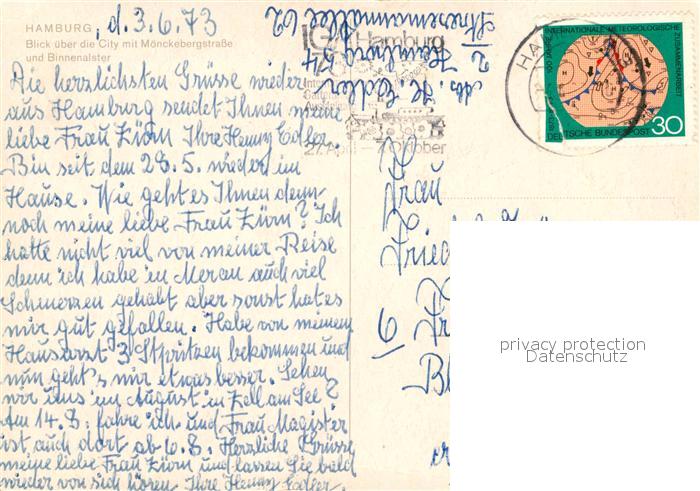 HAMBURG, d. 3.6.73
Blick über die City mit Mönckebergstraße
und Binnenalster
Die herzlichsten Grüsse wieder
aus Hamburg sendet Ihnen meine
liebe Frau Zürn Ihre Henny Edler
Bin seit dem 28.5. wieder im
Hause. Wie geht es Ihnen denn
noch meine liebe Frau Zürn? Ich
hatte nicht viel von meiner Reise
denn ich habe in Meran auch viel
Schmerzen gehabt aber sonst hat es
mir gut gefallen. Habe von meinem
Hausarzt 3 Spritzen bekommen und
nun geht's mir etwas besser. Sehen
wir uns im August in Zell am See?
Am 14.8. fahre ich und Frau Magister
ist auch dort ab 6.8. Herzliche Grüsse
meine liebe Frau Zürn und lassen Sie bald
wieder von sich hören. Ihre Henny Edler.
Abs. H. Edler
2 Hamburg 54
Stresemannallee 62
IGA Hamburg
27. April Oktober
HA
100 JAHRE INTERNATIONALE METEOROLOGISCHE ZUSAMMENARBEIT
DEUTSCHE BUNDESPOST 30
Frau
Fried
6
privacy protection
Datenschutz